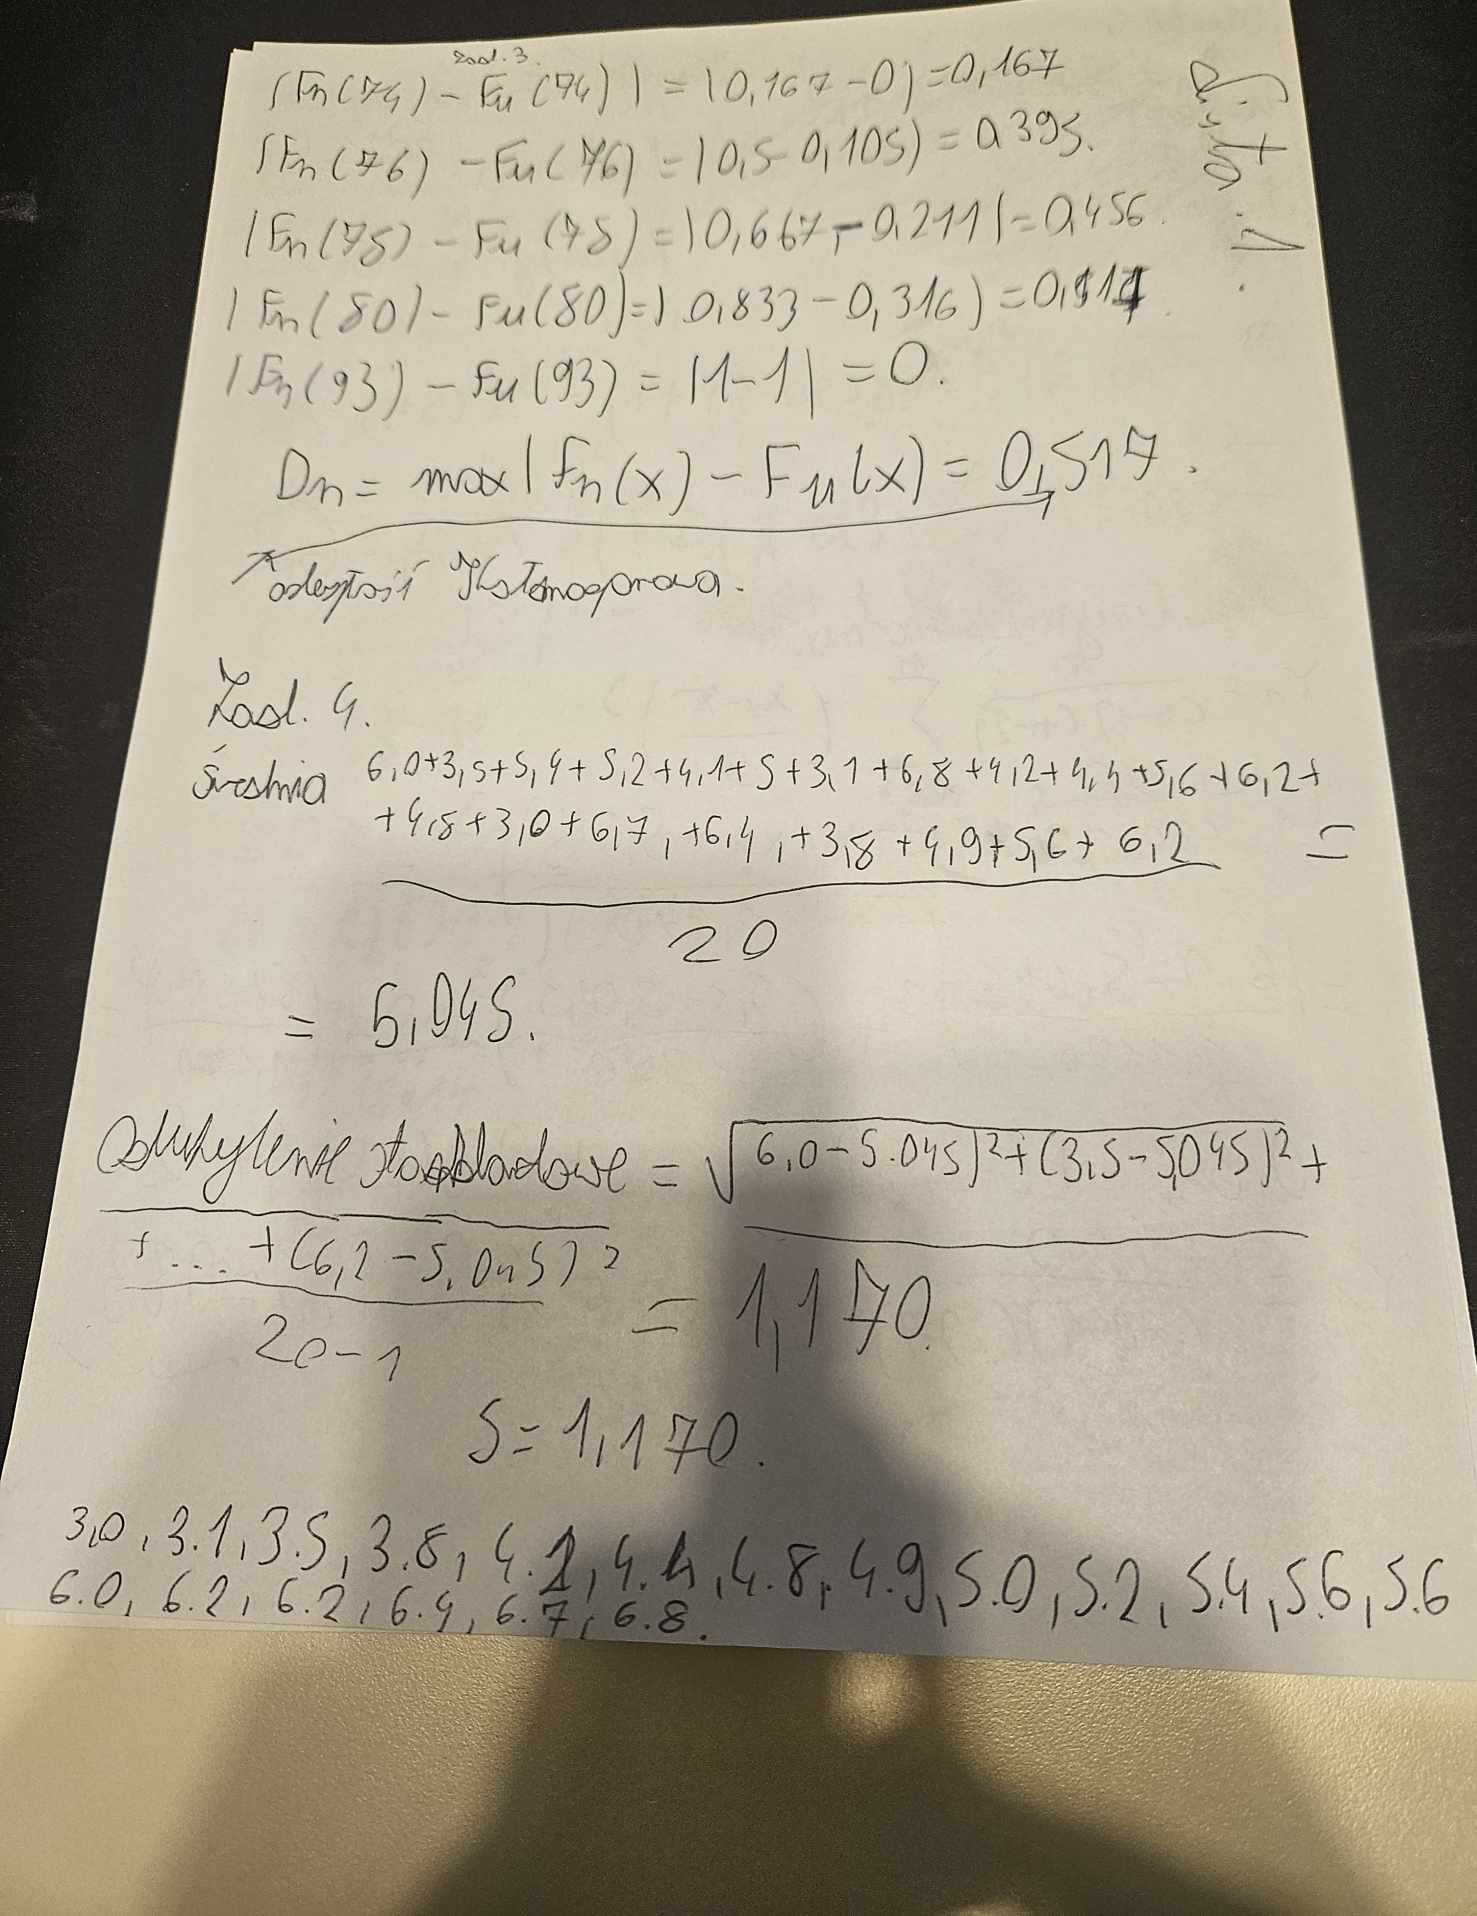 Zad. 3.
|Fn(74) - Fu(74)| = |0,167-0| = 0,167
|Fn(76) - Fu(76) = |0,5-0,105) = 0,395.
|Fn(78) - Fu(78) = |0,667-0,211| = 0,456.
|Fn(80) - Fu(80) = | 0,833-0,316) = 0,517.
|Fn(93) - Fu(93) = |1-1| = 0.
Dn = max|Fn(x) - Fu(x) = 0,517.
Lista. 1.
Zad. 4.
Średnia 6,0+3,5+5,4+5,2+4,1+5+3,1+6,8+4,2+4,4+5,6+6,2+
+4,8+3,0+6,7,+6,4,+3,8+4,9+5,6+ 6,2 =
20
= 5,045.
Odchylenie standardowe = √6,0-5.045)²+(3,5-5,045)²+
+ ... +(6,2-5,045)²
20-1
= 1,170.
S=1,170.
3,0, 3.1, 3.5, 3.8, 4.2, 4.4, 4.8, 4.9, 5.0, 5.2, 5.4, 5.6, 5.6
6.0, 6.2, 6.2, 6.4, 6.7, 6.8.